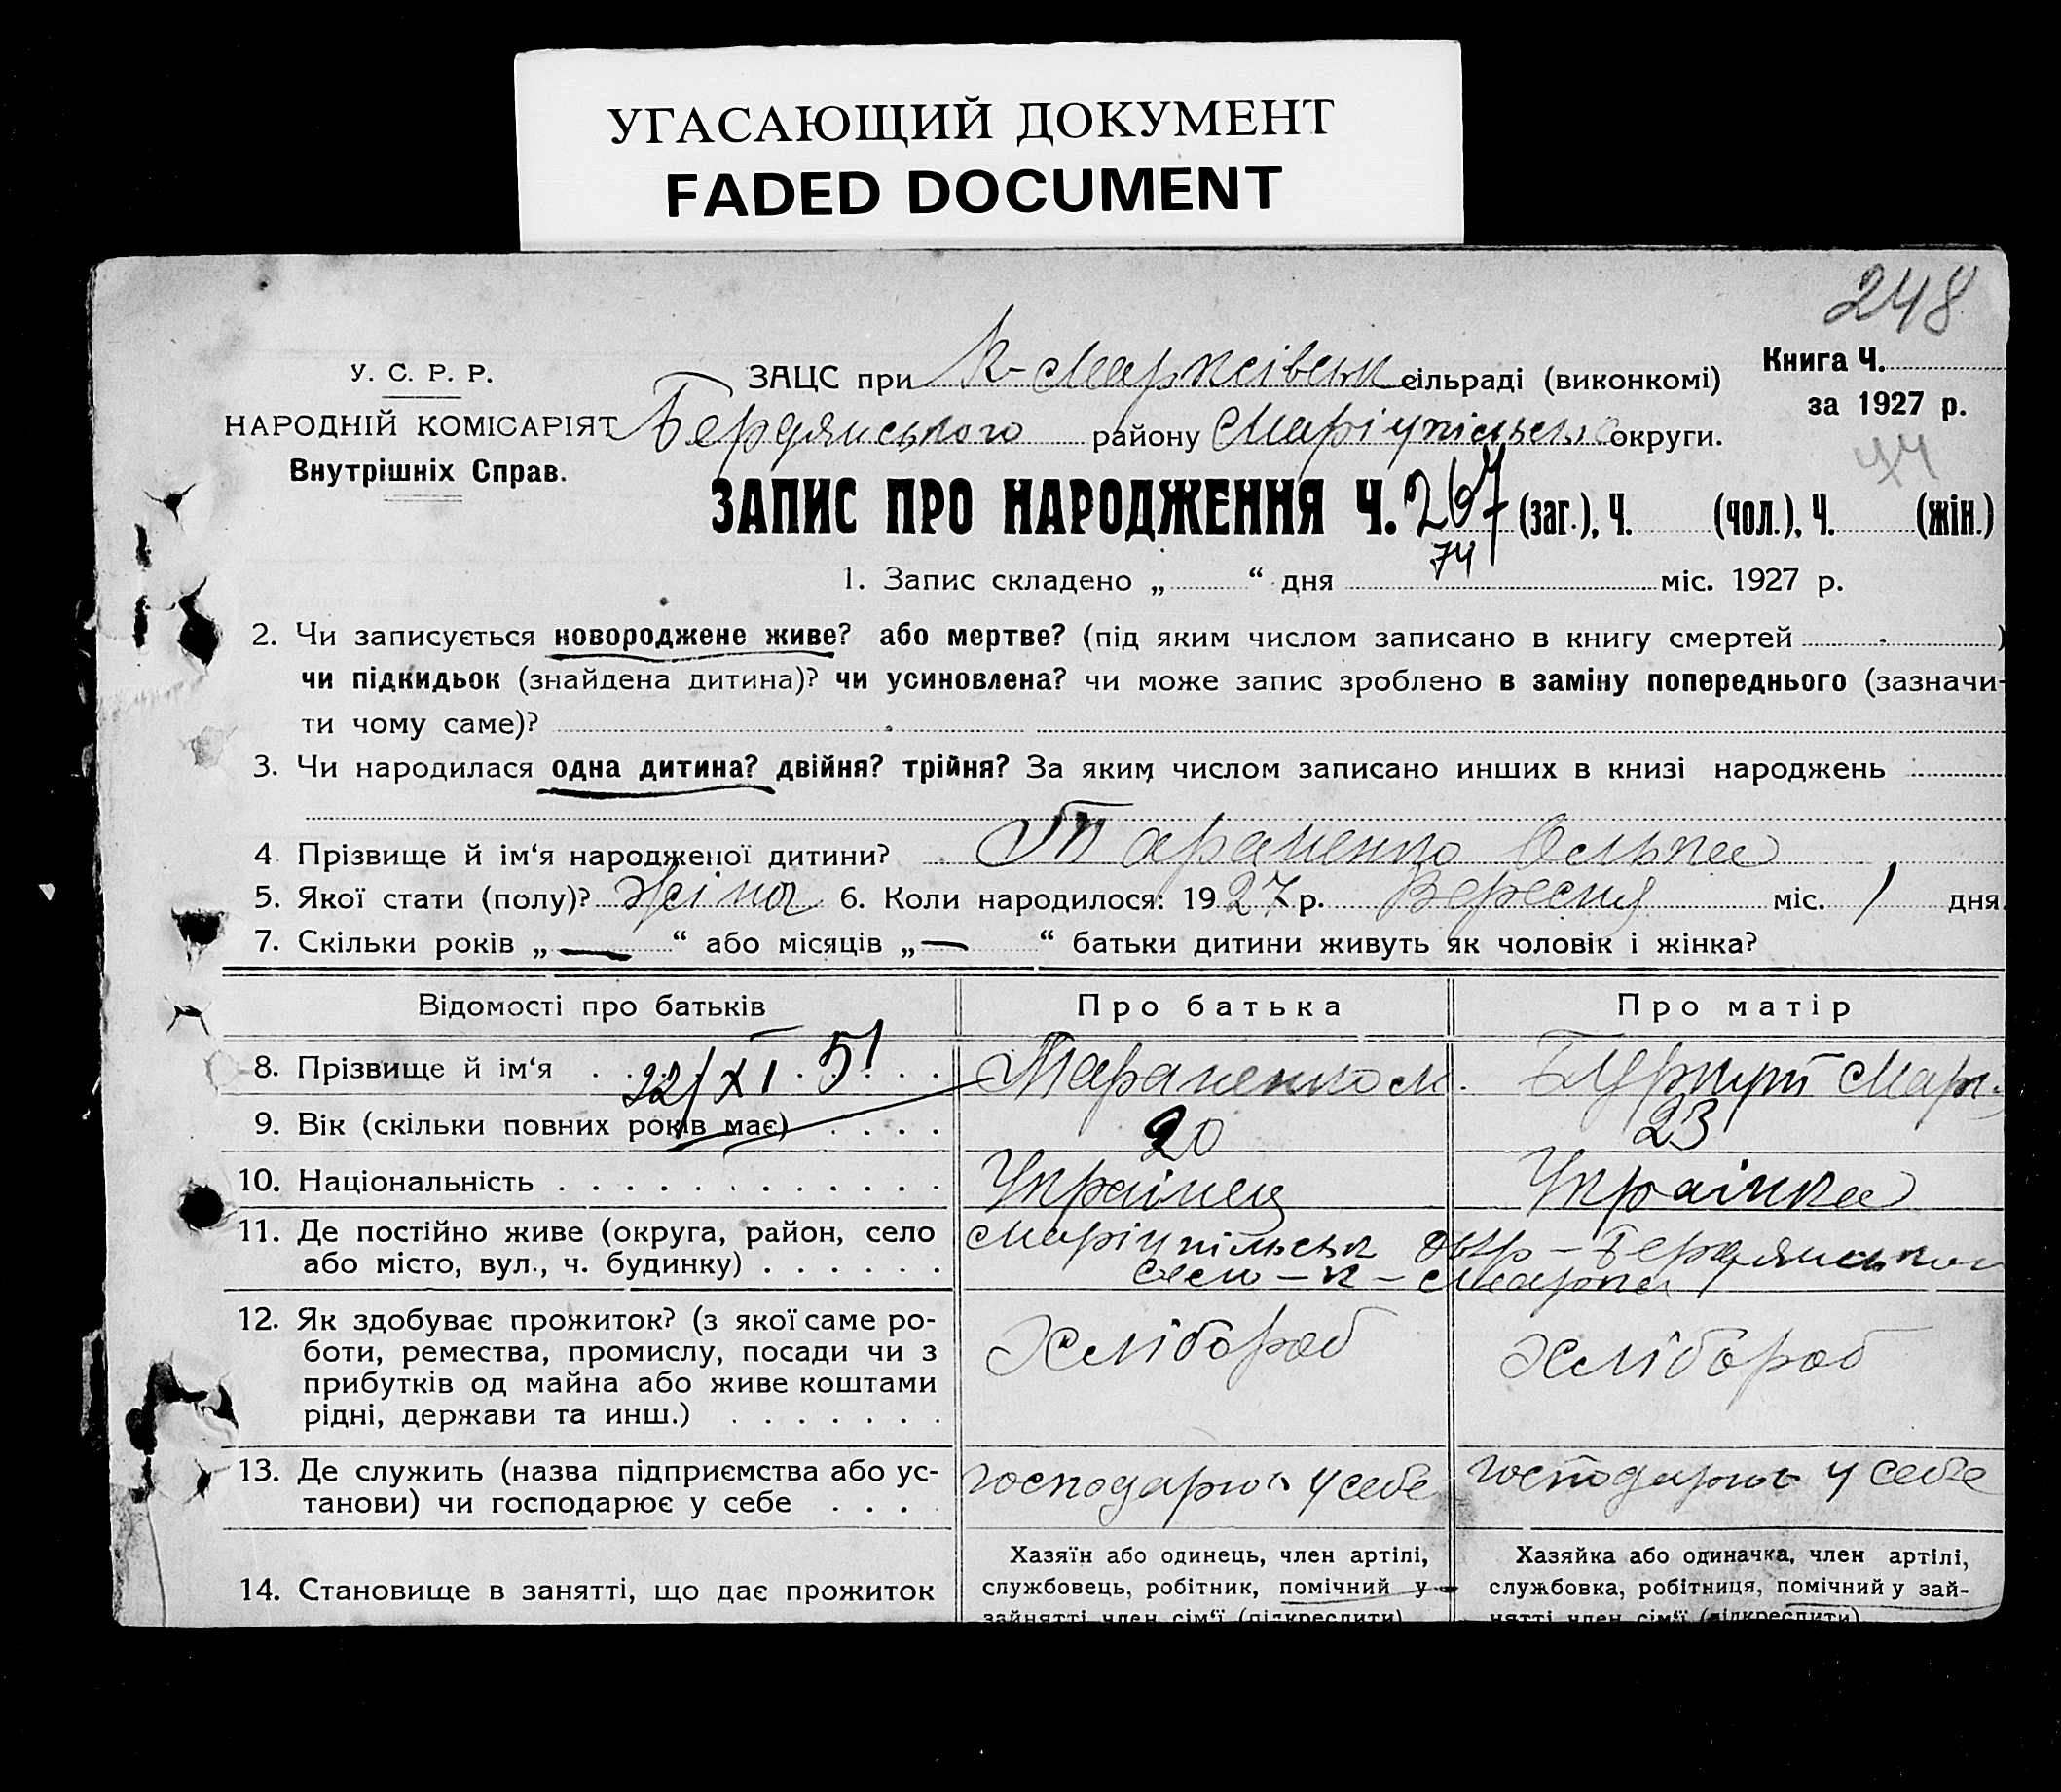 УГАСАЮЩИЙ ДОКУМЕНТ
FADED DOCUMENT
248
У. С. Р. Р.
НАРОДНІЙ КОМІСАРІЯТ
Внутрішніх Справ.
ЗАЦС при К-Марксівськ сільраді (виконкомі)
Бердянського району Маріупільсько округи.
Книга Ч.
за 1927 р.
44
ЗАПИС ПРО НАРОДЖЕННЯ Ч. 267 (заг.), Ч. (чол.), Ч. (жін.)
74
1. Запис складено „ “ дня міс. 1927 р.
2. Чи записується новороджене живе? або мертве? (під яким числом записано в книгу смертей )
чи підкидьок (знайдена дитина)? чи усиновлена? чи може запис зроблено в заміну попереднього (зазначи-
ти чому саме)?
3. Чи народилася одна дитина? двійня? трійня? За яким числом записано инших в книзі народжень
4. Прізвище й ім‘я народженої дитини? Тараненко Ольга
5. Якої стати (полу)? Жіноч 6. Коли народилося: 1927 р. Вересня міс. 1 дня.
7. Скільки років „ — “ або місяців „ — “ батьки дитини живуть як чоловік і жінка?
Відомості про батьків Про батька Про матір
22/XI 51
8. Прізвище й ім‘я Тараненко М. Мари
9. Вік (скільки повних років має) 20 23
10. Національність Українец Українка
11. Де постійно живе (округа, район, село Маріупільськ окр – Бердянськог
або місто, вул., ч. будинку) село – К – Маркса
12. Як здобуває прожиток? (з якої саме ро-
боти, ремества, промислу, посади чи з
прибутків од майна або живе коштами
рідні, держави та инш.)
Хлібороб Хлібороб
13. Де служить (назва підприємства або ус-
танови) чи господарює у себе
господарює у себе господарює у себе
14. Становище в занятті, що дає прожиток
Хазяїн або одинець, член артілі,
службовець, робітник, помічний у
зайнятті член сім‘ї (підкреслити)
Хазяйка або одиначка, член артілі,
службовка, робітниця, помічний у зай-
нятті член сім‘ї (підкреслити)